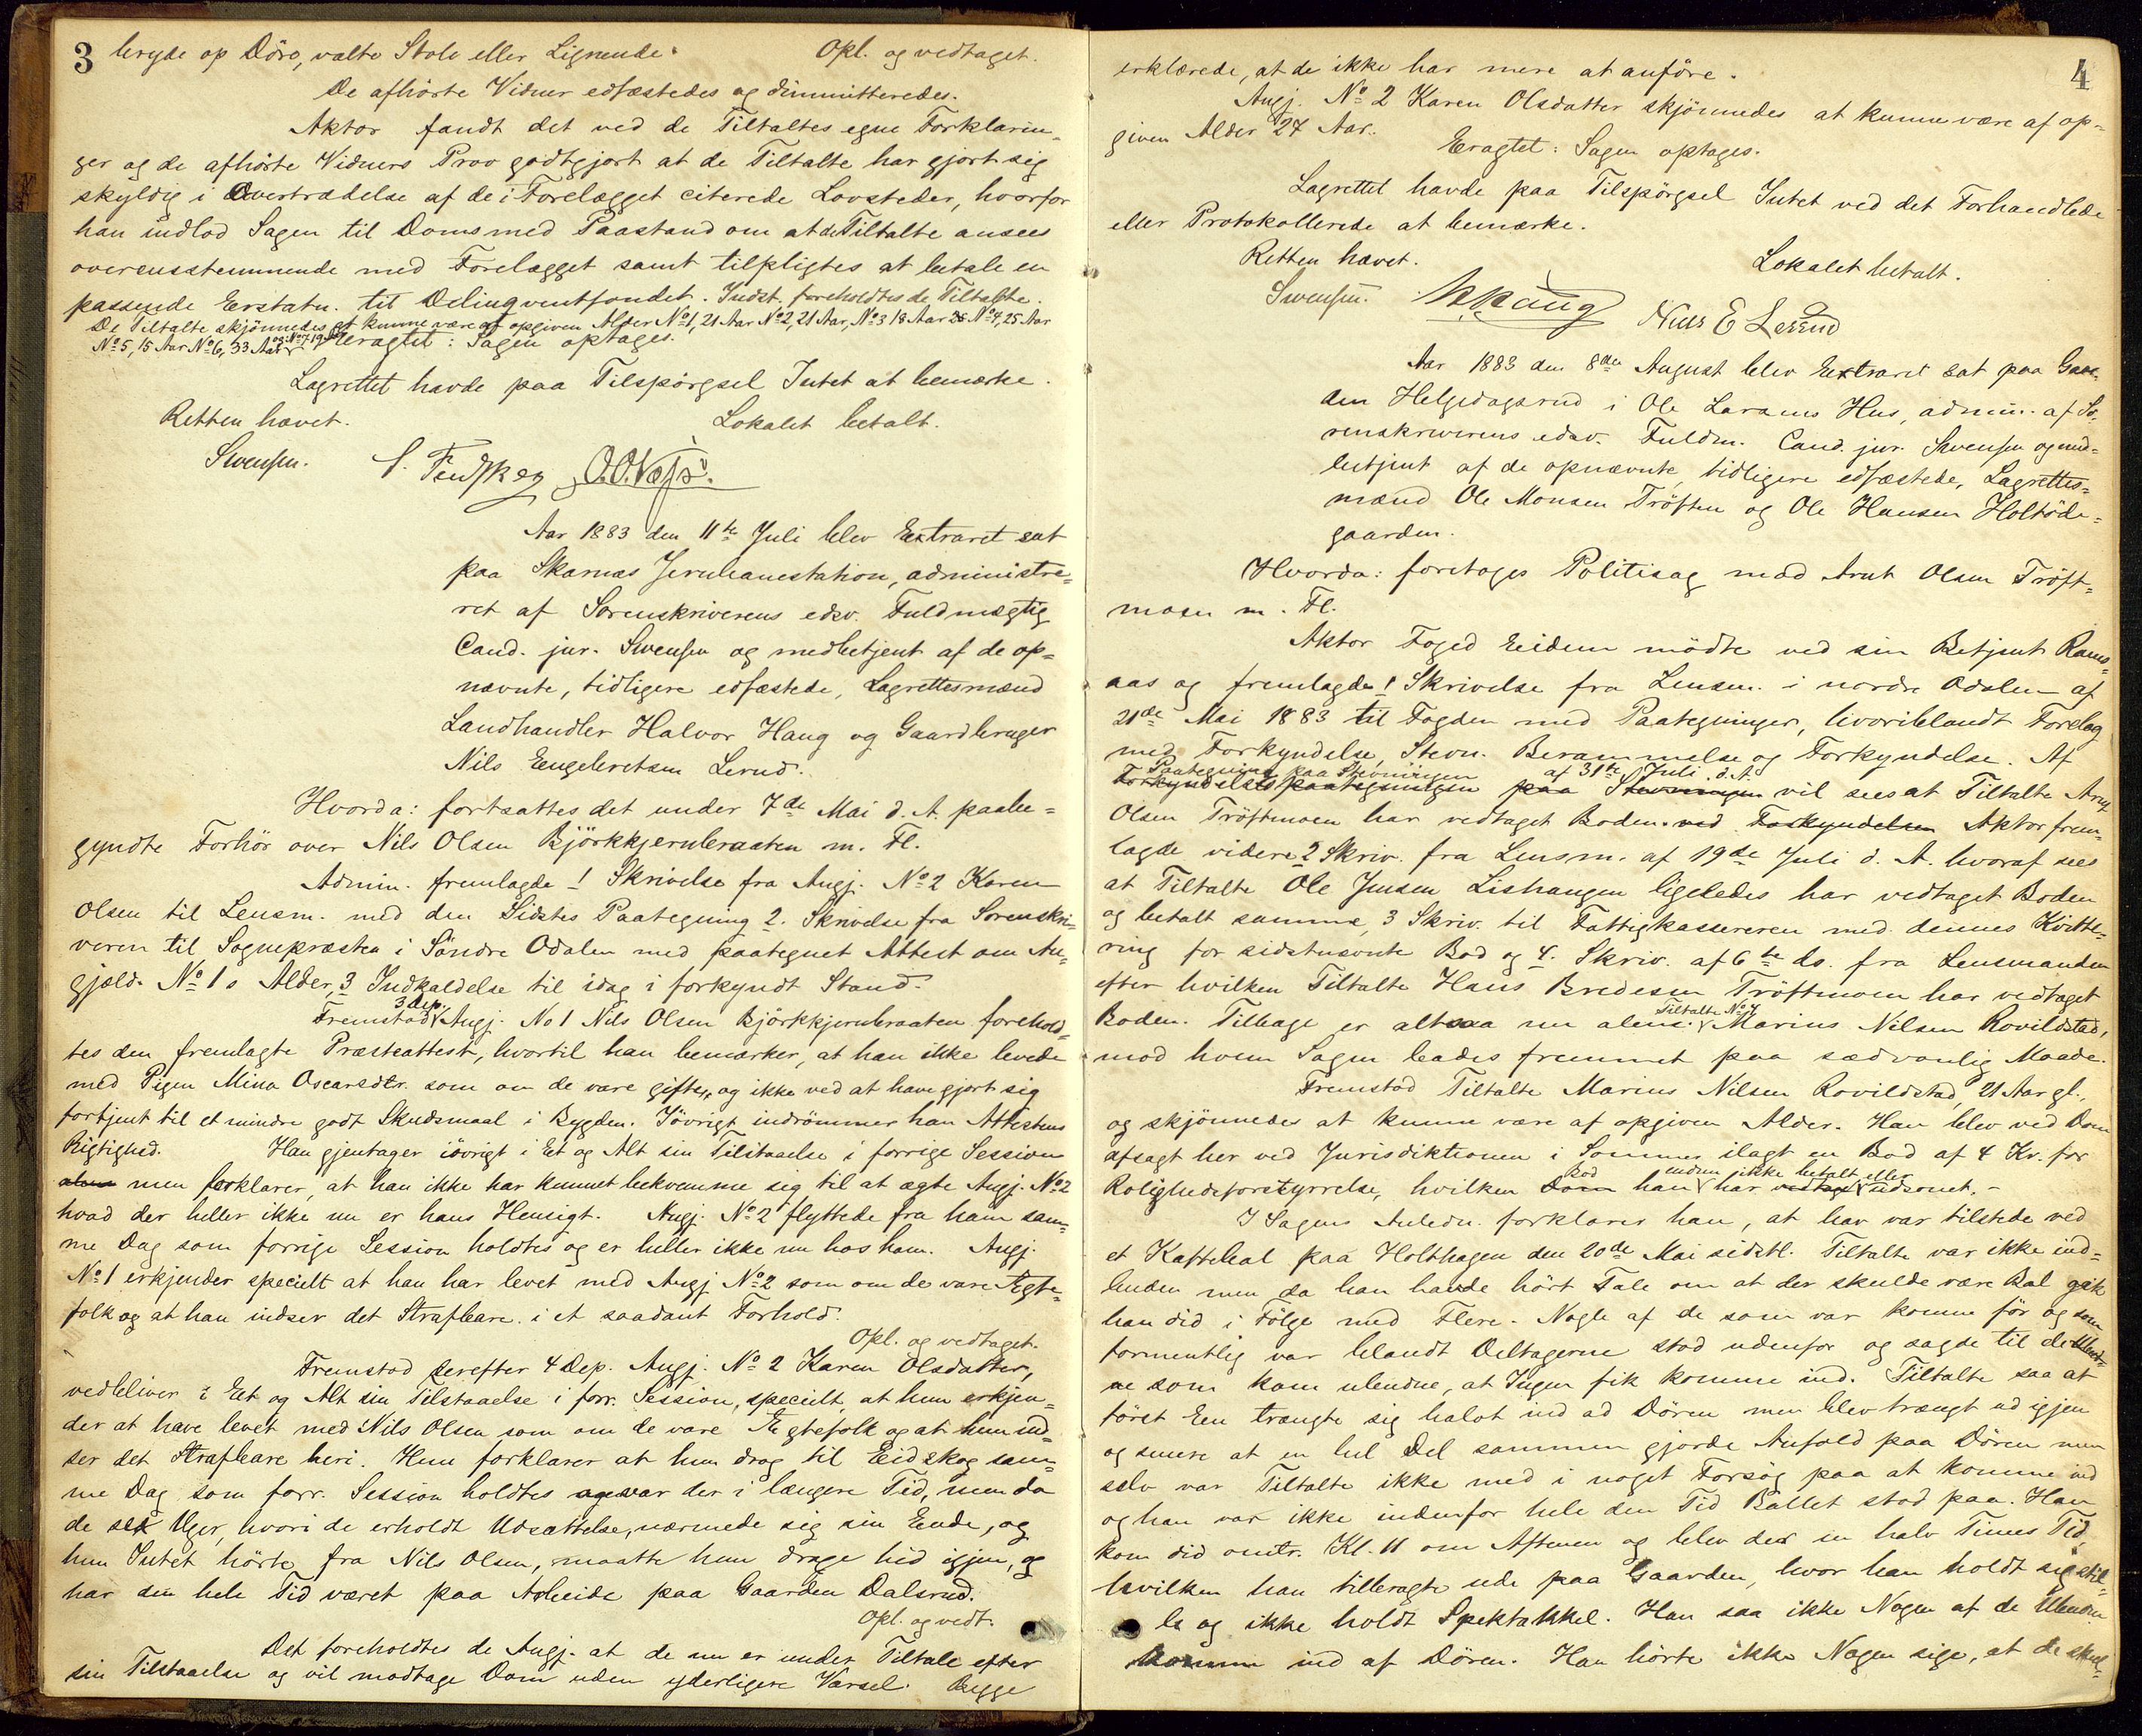 3
bryde op Döre, valte Stole eller Lignende. Opl. og vedtaget.
De afhörte Vidner edfæstedes og dimmitteredes.
Aktor fandt det ved de Tiltaltes egne Forklarin-
ger og de afhörte Vidners Prov godtgjort at de Tiltalte har gjort sig
skyldig i Overtrædelse af de i Forelægget citerede Lovsteder, hvorfor
han indlod Sagen til Doms med Paastand om at de Tiltalte ansees
overensstemmende med Forelægget samt tilpligtes at betale en
passende Erstatn. til Delinqventfondet. Indst. foreholdtes de Tiltalte.
De Tiltalte skjönnedes at kunne være af opgiven Alder No 1, 21 Aar No 2, 21 Aar, No 3 18 Aar No 4, 25 Aar
No 5, 15 Aar No 6, 33 Aar og No 7 19 Aar
Eragtet: Sagen optages.
Lagrettet havde paa Tilspörgsel Intet at bemærke.
Retten hævet. Lokalet betalt.
Swensen.
Aar 1883 den 11te Juli blev Extraret sat
paa Skarnæs Jernbanestation, administre=
ret af Sorenskriverens edsv. Fuldmægtig
Cand. jur. Swensen og medbetjent af de op=
nævnte, tidligere edfæstede, Lagrettesmænd
Landhandler Halvor Haug og Gaardbruger
Nils Engebretsen Lerud.
Hvorda: fortsattes det under 7de Mai d. A. paabe=
gyndte Forhör over Nils Olsen Björkkjernbraaten m. Fl.
Admin. fremlagde 1 Skrivelse fra Angj. No 2 Karen
Olsen til Lensm. med den Sidstes Paategning 2. Skrivelse fra Sorenskri=
veren til Sognepræsten i Söndre Odalen med paategnet Attest om An=
gjeld. No 1s Alder, 3 Indkaldelse til idag i forkyndt Stand.
3 Dep.
Fremstod Angj. No 1 Nils Olsen Björkkjernbraaten forehold=
tes den fremlagte Præsteattest, hvortil han bemærker, at han ikke levede
med Pigen Mina Oscarsdtr. som om de vare gifte, og ikke ved at have gjort sig
fortjent til et mindre godt Skudsmaal i Bygden. Iövrigt indrömmer han Attestens
Rigtighed. Han gjentager iövrigt i Et og Alt sin Tilstaaelse i forrige Session
men forklarer, at han ikke har kunnet bekvemme sig til at ægte Angj. No 2
hvad der heller ikke nu er hans Hensigt. Angj. No 2 flyttede fra ham sam=
me Dag som forrige Session holdtes og er heller ikke nu hos ham. Angj.
No 1 erkjender specielt at han har levet med Angj No 2 som om de vare Ægte=
folk og at han indser det Strafbare i et saadant Forhold.
Opl. og vedtaget.
Fremstod derefter 4 Dep. Angj. No 2 Karen Olsdatter,
vedbliver i Et og Alt sin Tilstaaelse i forr. Session, specielt, at hun erkjen=
der at have levet med Nils Olsen som om de vare Ægtefolk og at hun ind=
ser det Strafbare heri. Hun forklarer at hun drog til Eidskog sam=
me Dag som forr. Session holdtes og var der i længere Tid, men da
de sex Uger, hvori de erholdt Udsættelse, nærmede sig sin Ende, og
hun Intet hörte fra Nils Olsen, maatte hun drage hid igjen, og
har den hele Tid været paa Arbeide paa Gaarden Dalsrud.
Opl. og vedt.
Det foreholdtes de Angj. at de nu er under Tiltale efter
sin Tilstaaelse og vil modtage Dom uden yderligere Varsel. Begge
4
erklærede, at de ikke har mere at anföre.
Angj. No 2 Karen Olsdatter skjönnedes at kunne være af op=
given Alder 27 Aar.
Eragtet: Sagen optages.
Lagrettet havde paa Tilspörgsel Intet ved det Forhandlede
eller Protokollerede at bemærke.
Retten hævet. Lokalet betalt.
Swensen. Nils E Lerud
Aar 1883 den 8de August blev Extraret sat paa Gaar=
den Helgedagsrud i Ole Larsens Hus, admin. af So=
renskriverens edsv. Fuldm. Cand. jur. Swensen og med=
betjent af de opnævnte, tidligere edfæstede, Lagrettes=
mænd Ole Monsen Tröften og Ole Hansen Holtöde=
gaarden.
Hvorda: foretoges Politisag mod Arnt Olsen Tröft=
moen m. Fl.
Aktor Foged Eidem mödte ved sin Betjent Rams=
aas og fremlagde 1 Skrivelse fra Lensm. i nordre Odalen af
21de Mai 1883 til Fogden med Paategninger, hvoriblandt Forelæg
med Forkyndelse, Stevn. Berammelse og Forkyndelse. Af
Paategning paa Stevningen af 31te Juli d. A.
Forkyndelsespaategningen paa Stevningen vil sees at Tiltalte Arnt
Olsen Tröftmoen har vedtaget Boden ved Forkyndelsen Aktor frem=
lagde videre 2 Skriv. fra Lensm. af 19de Juli d. A. hvoraf sees
at Tiltalte Ole Jensen Lishaugen ligeledes har vedtaget Boden
og betalt samme, 3 Skriv. til Fattigkassereren med dennes Kvitte=
ring for sidstnævnte Bod og 4. Skriv. af 6te ds. fra Lensmanden
efter hvilken Tiltalte Hans Bredesen Tröftmoen har vedtaget
Tiltalte No 4
Boden. Tilbage er altsaa nu alene Marius Nilsen Rovildstad,
mod hvem Sagen bades fremmet paa sædvanlig Maade.
Fremstod Tiltalte Marius Nilsen Rovildstad, 21 Aar gl.,
og skjönnedes at kunne være af opgiven Alder. Han blev ved Dom
afsagt her ved Jurisdiktionen i Sommer ilagt en Bod af 4 Kr. for
Bod endnu ikke betalt eller
Rolighedsforstyrrelse, hvilken Dom han har vedtaget udsonet.-
I Sagens Anledn. forklarer han, at han var tilstede ved
et Kaffebal paa Holthagen den 20de Mai sidstl. Tiltalte var ikke ind=
buden men da han havde hört Tale om at der skulde være Bal gik
han did i Fölge med Flere. Nogle af de som var komne för og som
formentlig var blandt Deltagerne stod udenfor og sagde til de Ubud=
ne som kom ubudne, at Ingen fik komme ind. Tiltalte saa at
först Een trængte sig halvt ind ad Dören men blev trængt ud igjen
og senere at en hel Del sammen gjorde Anfald paa Dören men
selv var Tiltalte ikke med i noget Forsög paa at komme ind
og han var ikke indenfor hele den Tid Ballet stod paa. Han
kom did omtr. Kl. 11 om Aftenen og blev der en halv Times Tid,
hvilken han tilbragte ude paa Gaarden, hvor han holdt sig stil=
le og ikke holdt Spektakkel. Han saa ikke Nogen af de Ubudne
komme ind af Dören. Han hörte ikke Nogen sige, at de skul=